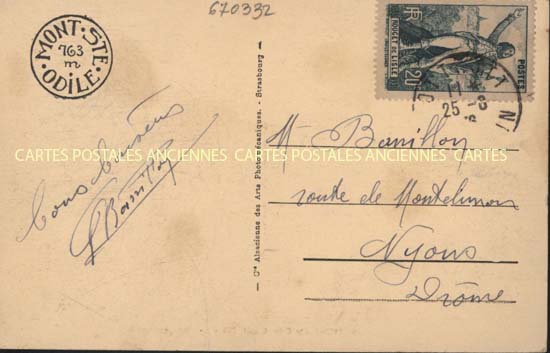 670332
MONT STE
763
m
ODILE
POSTES
RF
ROUGET DE LISLE
20
11
25-8
CARTES POSTALES ANCIENNES CARTES POSTALES ANCIENNES CARTES
Bons baisers
Banillon
Cie Alsacienne des Arts Photomécaniques. - Strasbourg
M. Banillon
route de Montelimar
Nyons
Drôme